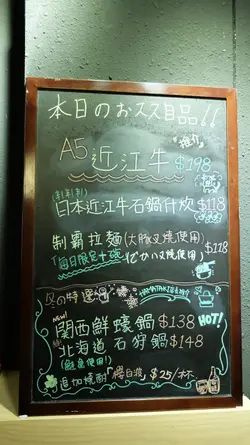 本日のおススメ品!!
「推介」
A5近江牛 $198
日本近江牛石鍋什炊 $118
制霸拉麵(大豚叉燒使用) $118
「毎日限定十碗」
冬の特選
NEW!
関西鮮蠔鍋 $138 HOT!
北海道石狩鍋 $148
(鮭魚使用!)
追加燒酎 $25/杯